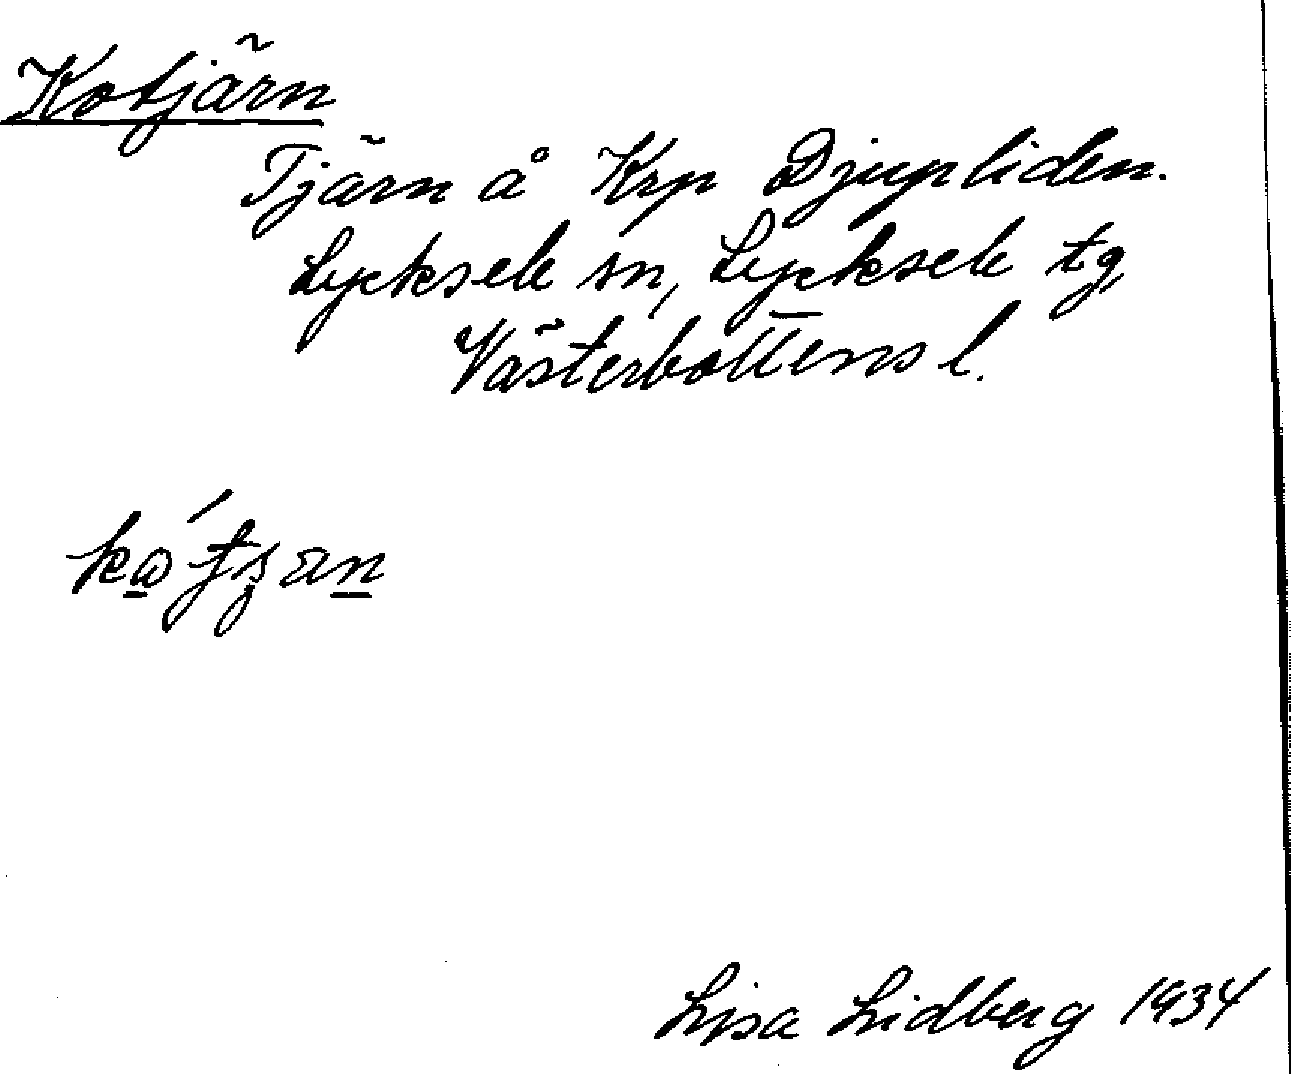 Kotjärn
Tjärn å Krp Djupliden.
Lycksele sn, Lycksele tg,
Västerbottens l.
Lisa Lidberg 1934